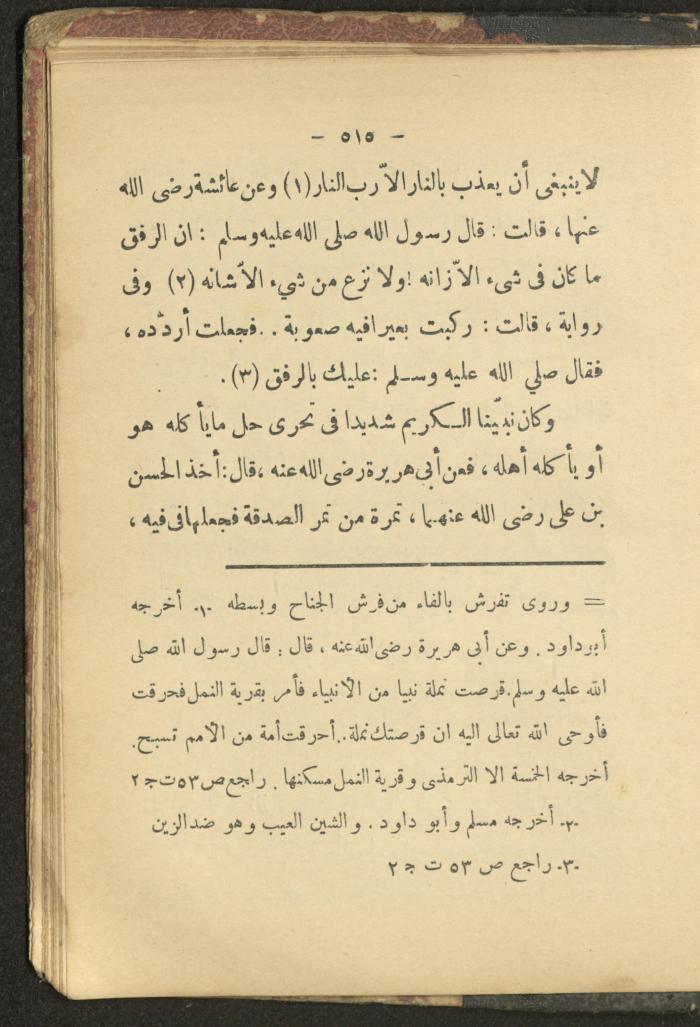 - ٥١٥ -
لا ينبغى أن يعذب بالنار الاّ رب النار (١) وعن عائشة رضى الله
عنها ، قالت : قال رسول الله صلى الله عليه وسلم : ان الرفق
ما كان فى شىء الاّ زانه ! ولا نزع من شيء الاّ شانه (٢) وفى
رواية ، قالت : ركبت بعيرا فيه صعوبة . . فجعلت أردّده ،
فقال صلي الله عليه وسلم : عليك بالرفق (٣) .
وكان نبيّنا الكريم شديدا فى تحرى حل ما يأكله هو
أو يأكله أهله ، فعن أبى هريرة رضى الله عنه ، قال : أخذ الحسن
بن على رضى الله عنهما ، تمرة من تمر الصدقة فجعلها فى فيه ،
= وروى تفرش بالفاء من فرش الجناح وبسطه -١- أخرجه
أبو داود . وعن أبى هريرة رضى الله عنه ، قال : قال رسول الله صلى
الله عليه وسلم . قرصت نملة نبيا من الانبياء فأمر بقرية النمل فحرقت
فأوحى الله تعالى اليه ان قرصتك نملة . . أحرقت أمة من الامم تسبح .
أخرجه الخمسة الا الترمذى وقرية النمل مسكنها . راجع ص ٥٣ ت ج ٢
-٢- أخرجه مسلم وأبو داود . والشين العيب وهو ضد الزين
-٣- راجع ص ٥٣ ت ج ٢